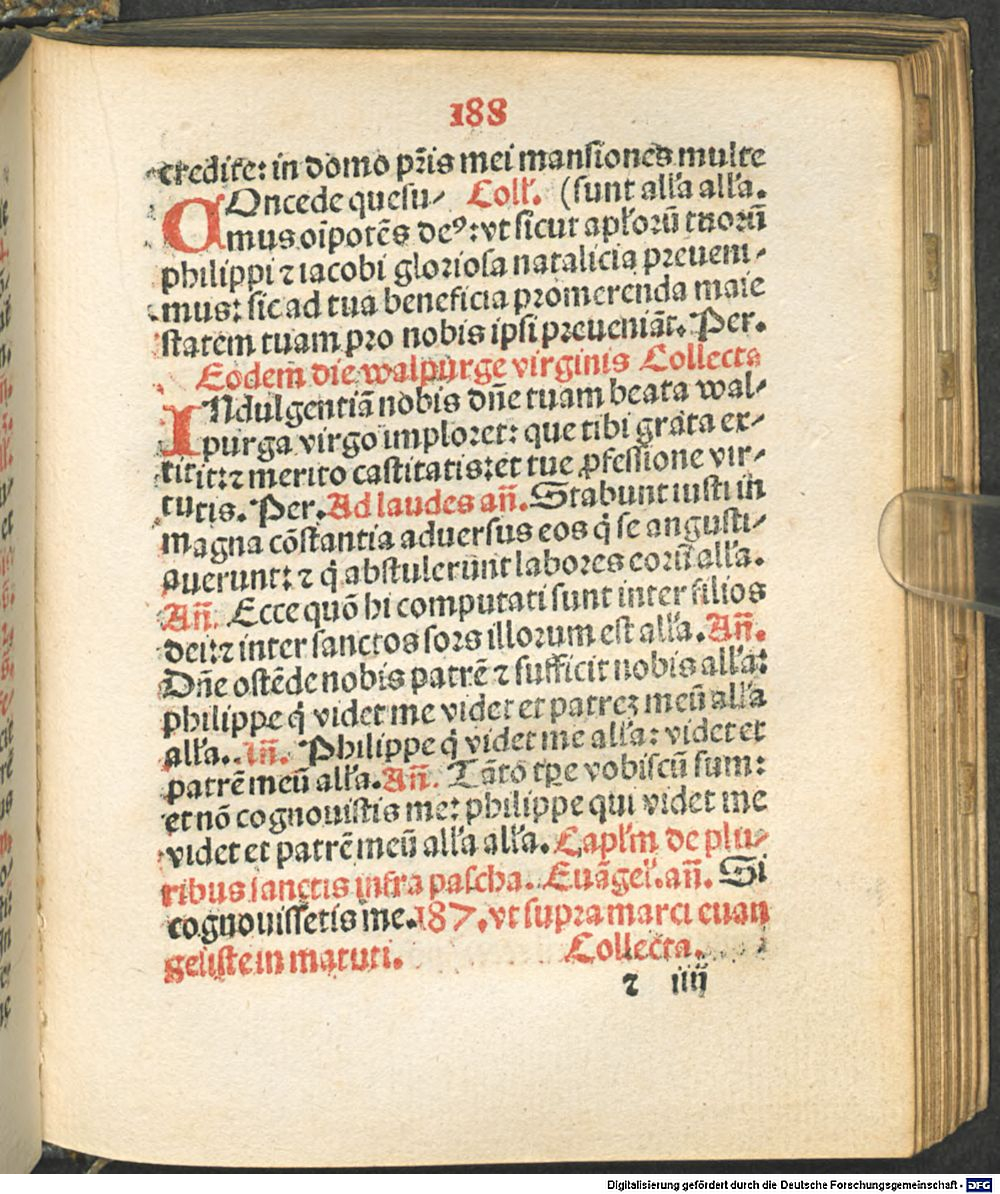 188
credite: in domo pr̃is mei mansiones multe
COncede quesu⸗ Coll̃. (sunt all'a all'a.
mus oĩpotẽs deꝰ: vt sicut apl'orũ tuorũ
philippi ⁊ iacobi gloriosa natalicia preueni⸗
mus: sic ad tua beneficia promerenda maie
statem tuam pro nobis ipsi preueniãt. Per.
Eodem̃ die walpurge virginis Collecta
INdulgentiã nobis dñe tuam beata wal⸗
purga virgo imploret: que tibi grata ex⸗
titit: ⁊ merito castitatis: et tue ꝓfessione vir⸗
tutis. Per. Ad laudes añ. Stabunt iusti in
magna cõstantia aduersus eos q̇ se angusti⸗
auerunt: ⁊ q̇ abstulerunt labores eorũ all'a.
Añ. Ecce quõ hi computati sunt inter filios
dei: ⁊ inter sanctos sors illorum est all'a. Añ.
Dñe ostẽde nobis patrẽ ⁊ sufficit nobis all'a:
philippe q̇ videt me videt et patreꝫ meũ all'a
all'a. Añ. Philippe q̇ videt me all'a: videt et
patrẽ meũ all'a. Añ. Tãto tꝑe vobiscũ sum:
et nõ cognouistis me: philippe qui videt me
videt et patrẽ meũ all'a all'a. Capl'm de plu⸗
ribus sanctis infra pascha. Euãgel'. añ. Si
cognouissetis me. 187. vt supra marci euan
geliste in matuti. Collecta.
⁊ iiij
Digitalisierung gefördert durch die Deutsche Forschungsgemeinschaft - DFG